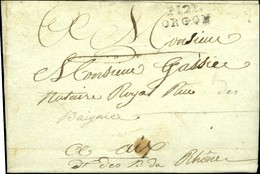 A Monsieur
P.12.P.
ORGON
Monsieur Gassier
Notaire Royal Rue des
Baignes
a aix
dt des B. du Rhône